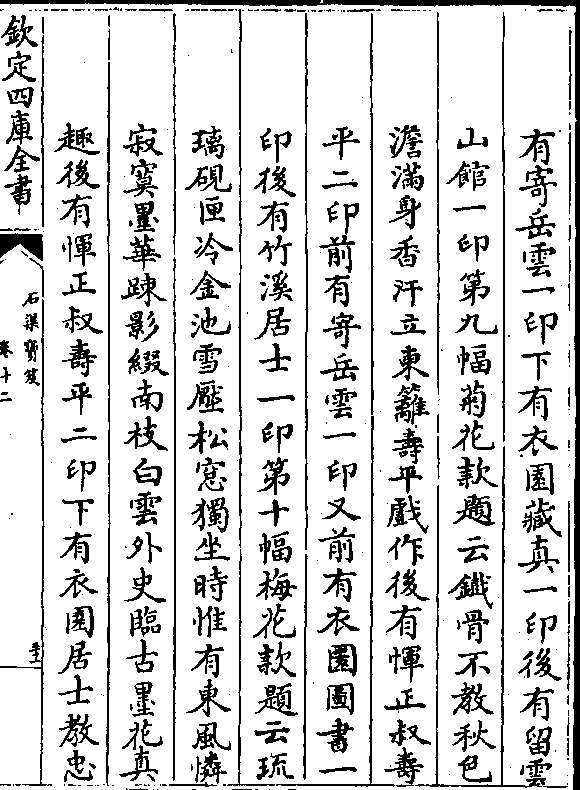 有寄岳雲一印下有衣園藏真一印後有留雲
山館一印第九幅菊花款題云鐵骨不教秋色
澹滿身香汗立東籬壽平戲作後有惲正叔壽
平二印前有寄岳雲一印又前有衣園圖書一
印後有竹溪居士一印第十幅梅花款題云琉
璃硯匣冷金池雪壓松窓獨坐時惟有東風憐
寂寞墨華踈影綴南枝白雲外史臨古墨花真
趣後有惲正叔壽平二印下有衣園居士教忠
欽定四庫全書
石渠寶笈
卷十二